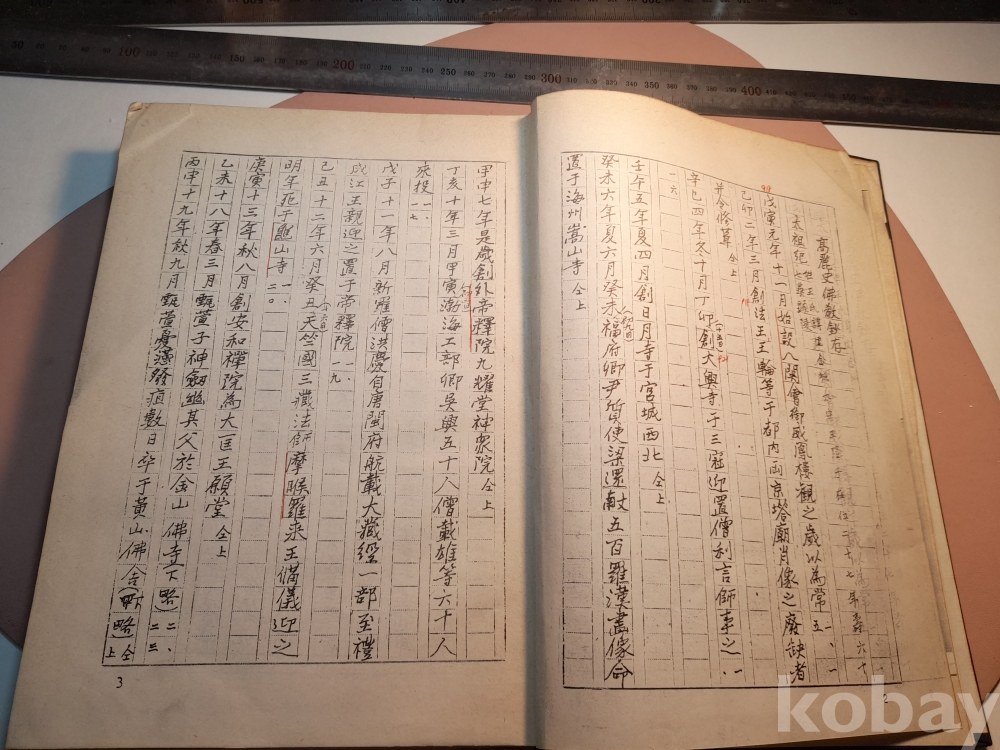 高麗史佛敎鈔存
太祖紀
戊寅元年十一月始設八関會御威鳳樓觀之歲以為常 五、一
己卯二年三月創法王王輪等十寺都内両京塔廟肖像之廃缺者
并令修葺 仝上
辛巳四年冬十月丁卯創大興寺于三冠迎置僧利言師事之 一、
一六
壬午五年夏四月創日月寺于宮城西北 仝上
癸未六年夏六月癸未福府卿尹質使梁還献五百羅漢畫像命
置于海州嵩山寺 仝上
2
甲申七年是歲創外帝釋院九耀堂神衆院 仝上
丁亥十年三月甲寅渤海工部卿吳興五十人僧載雄等六十人
來投 一、一七
戊子十一年八月新羅僧洪慶自唐閩府航載大藏經一部至禮
成江王親迎之置于帝釋院 一、一九
己丑十二年六月癸丑天竺國三藏法師摩睺羅来王備儀迎之
明年死于龜山寺 一、二〇
庚寅十三年秋八月創安和禪院為大匡王願堂 仝上
乙未十八年春三月甄萱子神劒幽其父於金山佛寺(下略) 二、
丙申十九年秋九月甄萱憂懣發疽數日卒于黃山佛舍(略) 仝上
3
50 100 200 250 300 350 400
kobay